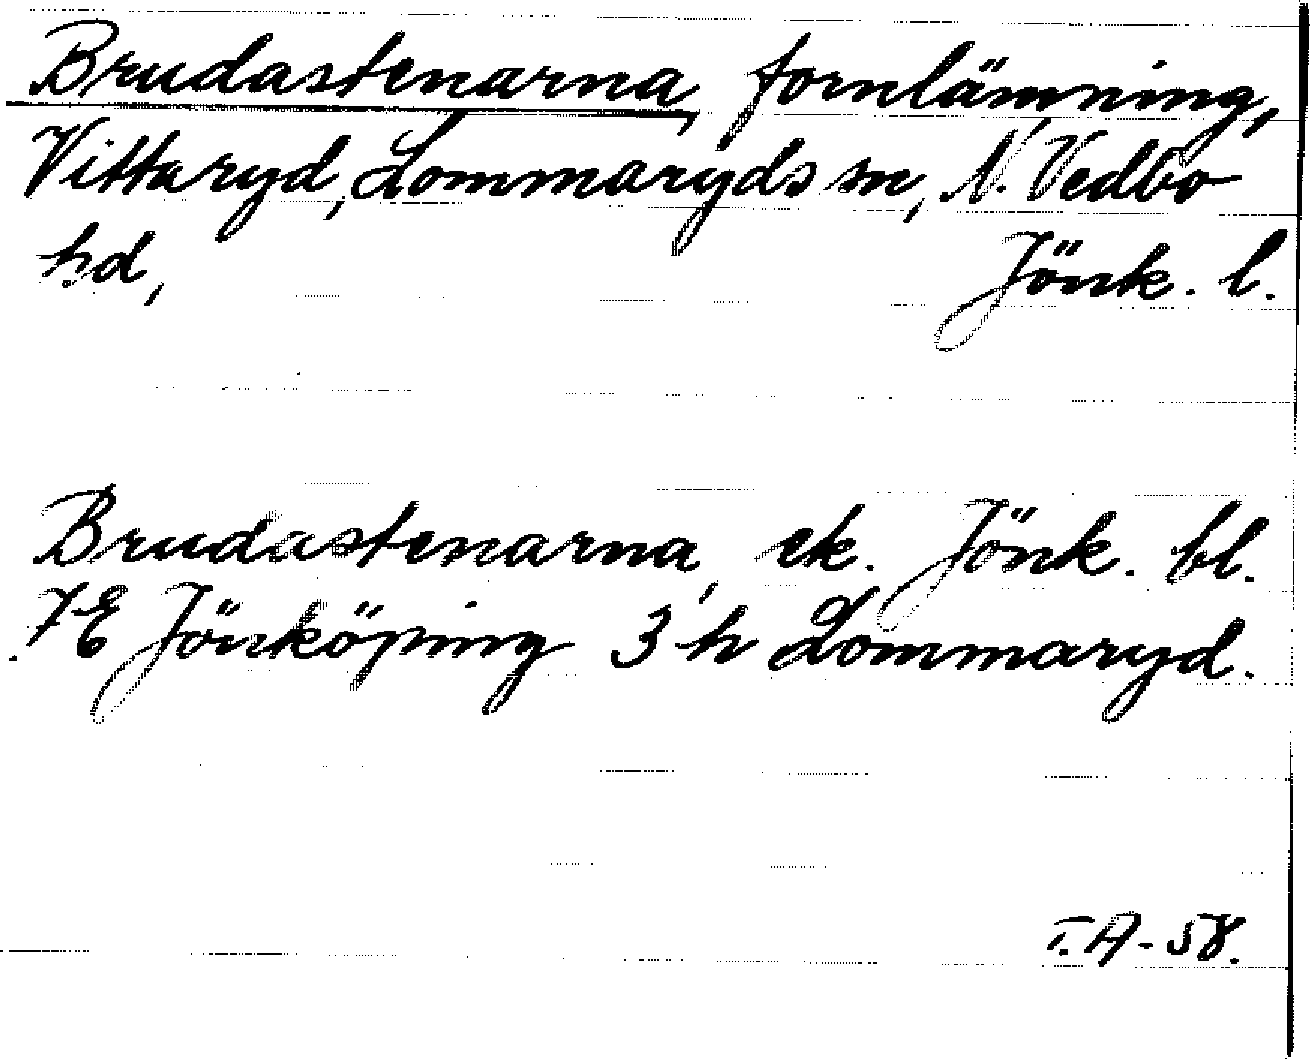 Brudastenarna, fornlämning,
Vittaryd, Lommaryds sn, N. Vedbo
hd, Jönk. l.
Brudastenarna, ek. Jönk. bl.
7E Jönköping 3 h Lommaryd.
T.A-58.